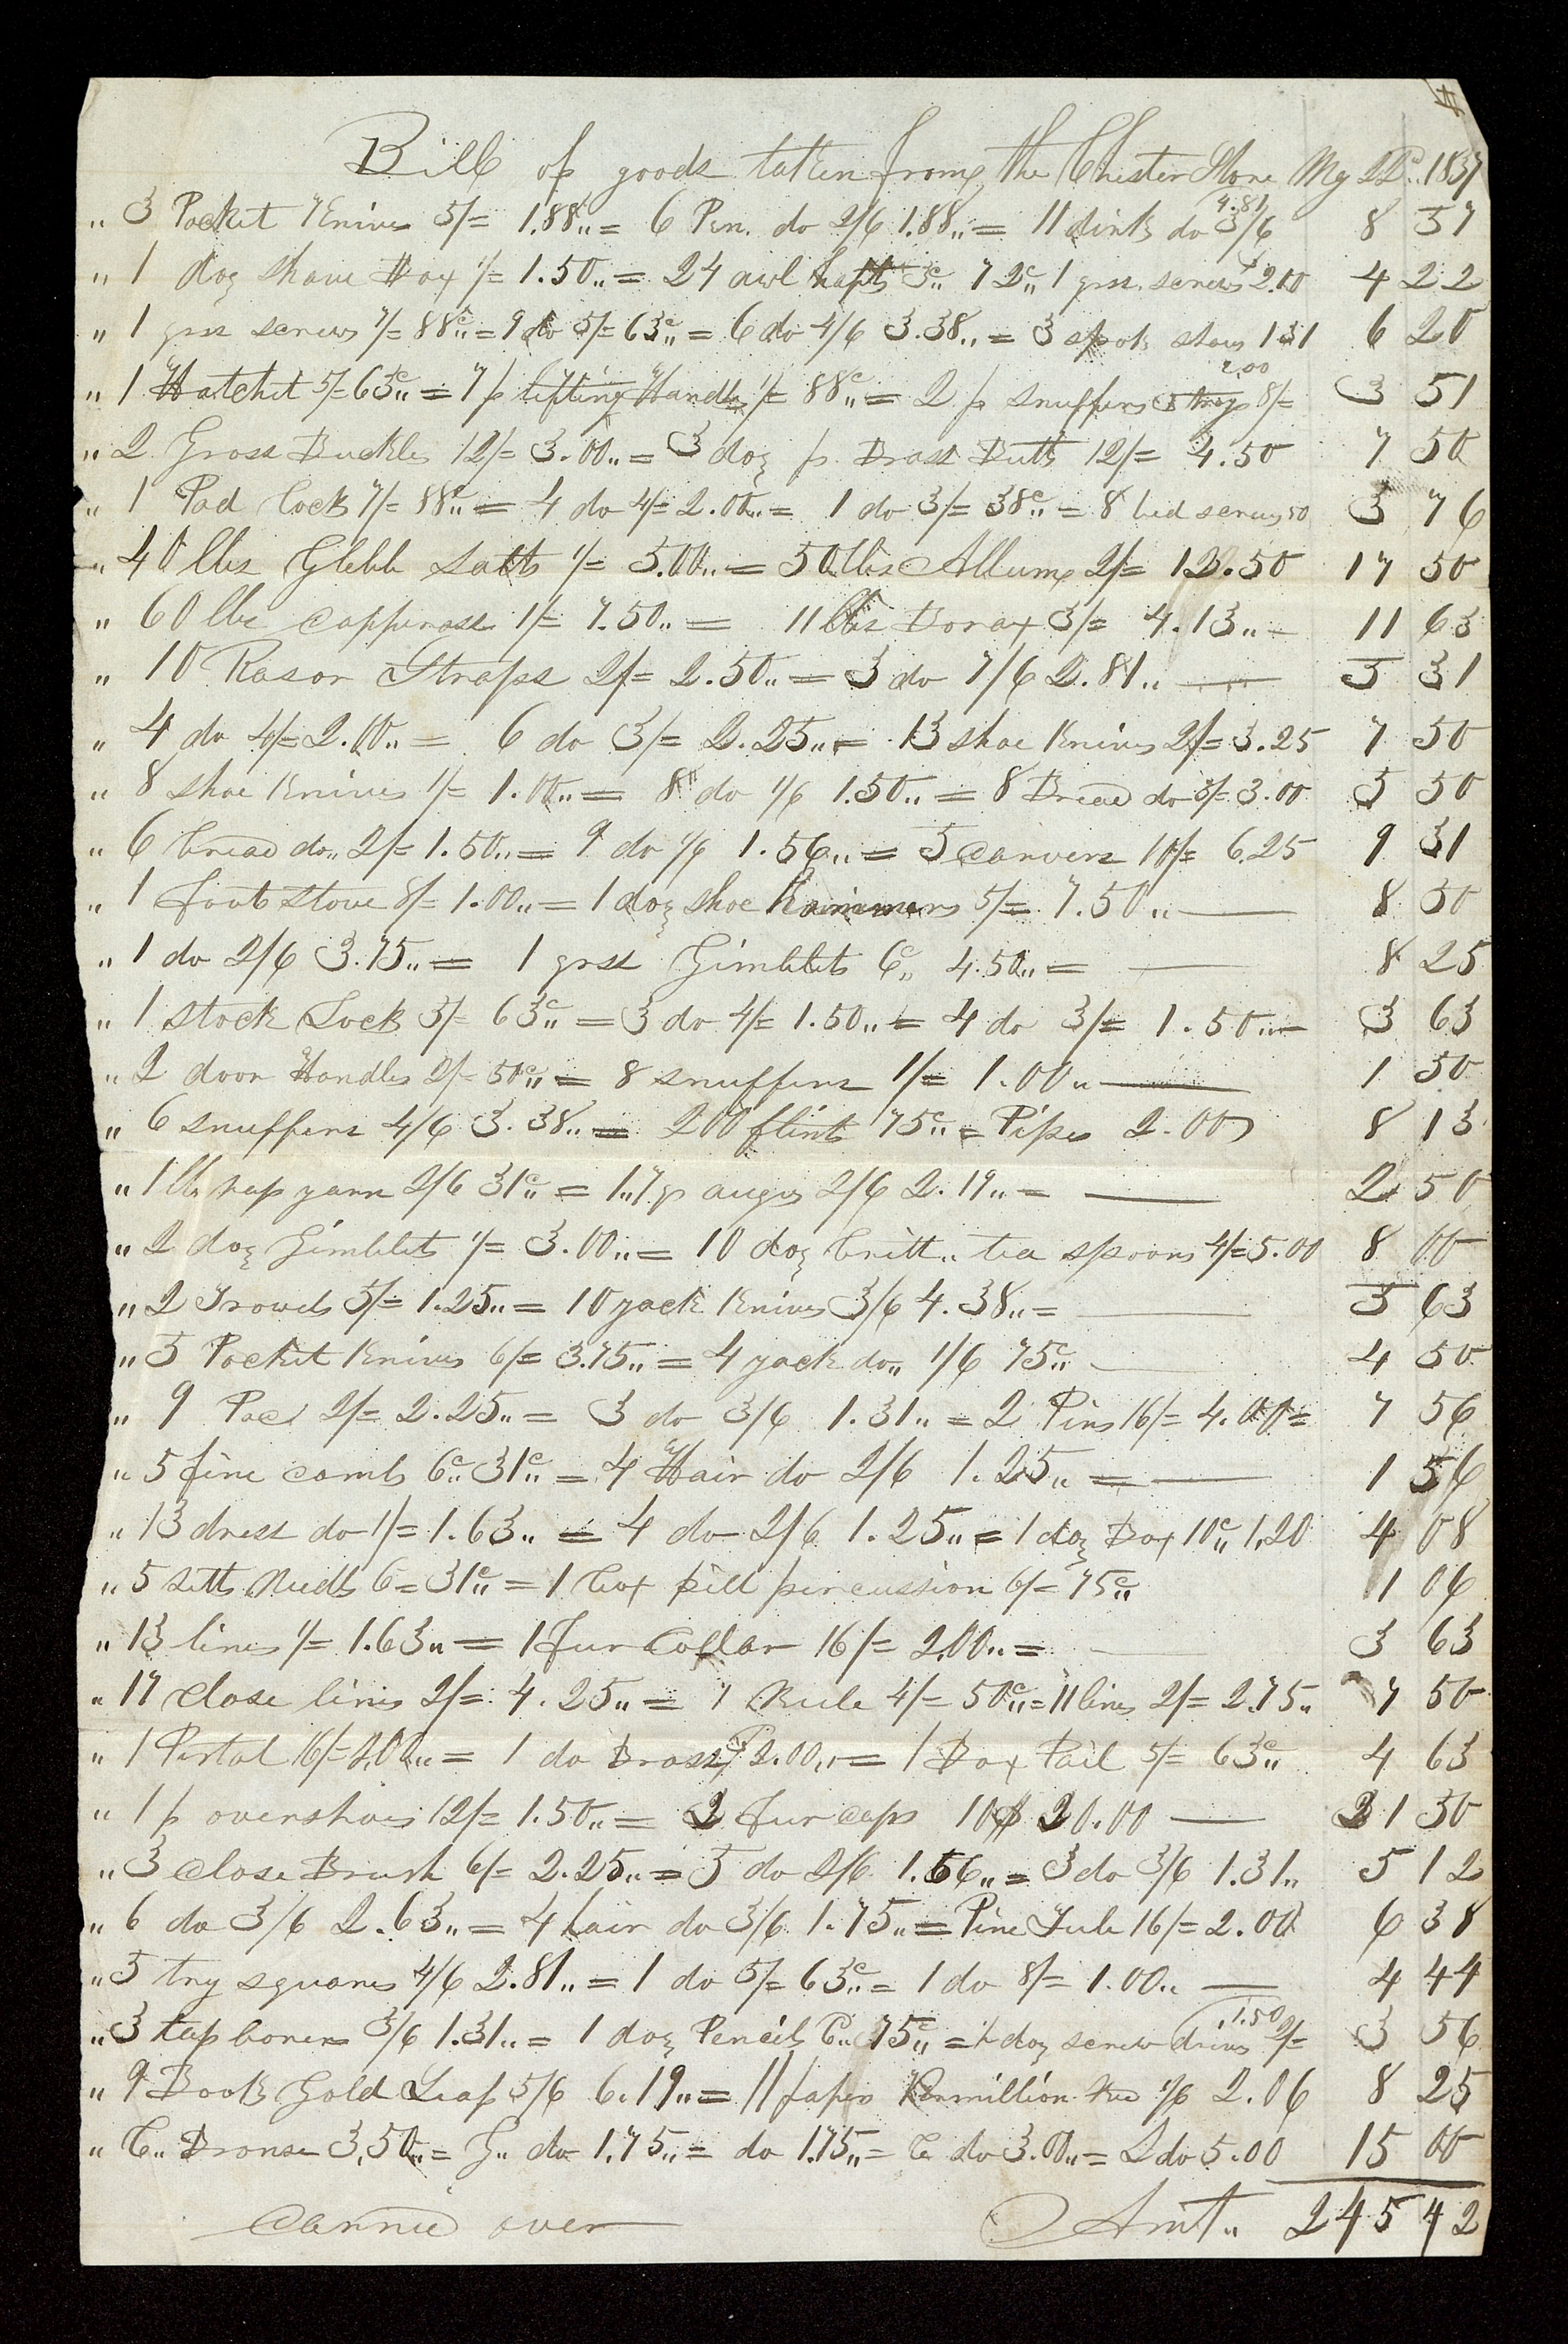 Bill of goods taken from the Chester Store My 22d.. 1837
4.81
" 3 Pocket Knives 5/= 1.88.. = 6 Pen. do 2/6 1.88.. = 11 dirks do 3/6 8 57
" 1 doz shave Box 1/= 1.50.. = 24 awl hafts 3c.. 72c.. 1 grs. screws 2.00 4 22
" 1 grss screws 7/= 88c.. = 9 do 5/= 63c.. = 6 do 4/6 3.38.. = 3 spok shavs 131 6 20
2.00
" 1 Hatchet 5/= 63c.. = 7 p lifting Handls 1/= 88c.. = 2 p snuffers & trays 8/= 3 51
" 2 Gross Buckles 12/= 3.00.. = 3 doz p. Brass Butts 12/= 4.50 7 50
" 1 Pad Lock 7/= 88c.. = 4 do 4/= 2.00.. = 1 do 3/= 38c.. = 8 bed screws 50 3 76
" 40 lbs Glebb Satts 1/= 5.00.. = 50 lbs Allum 2/= 12.50 17 50
" 60 lbs copperass 1/= 7.50.. = 11 lbs Borax 3/= 4.13.. = 11 63
" 10 Rasor Straps 2/= 2.50.. = 3 do 7/6 2.81.. 5 31
" 4 do 4/= 2.00.. = 6 do 3/= 2.25.. = 13 shoe Knives 2/= 3.25 7 50
" 8 shoe Knives 1/= 1.00.. = 8 do 1/6 1.50.. = 8 Bread do 3/= 3.00 5 50
" 6 bread do.. 2/= 1.50.. = 9 do 1/6 1.56.. = 5 carvers 10/= 6.25 9 31
" 1 foot stove 8/= 1.00.. = 1 doz shoe hammers 5/= 7.50.. 8 50
" 1 do 2/6 3.75.. = 1 grss Gimblets 6c.. 4.50.. = 8 25
" 1 stock Lock 5/= 63c.. = 3 do 4/= 1.50.. = 4 do 3/= 1.50.. 3 63
" 2 door Handles 2/= 50c.. = 8 snuffers 1/= 1.00.. 1 50
" 6 snuffers 4/6 3.38.. = 200 flints 75c.. = Pipes 2.00 8 13
" 1 lb shap yarn 2/6 31c.. = 1..7 p augrs 2/6 2.19.. = 2 50
" 2 doz Gimblets 1/= 3.00.. = 10 doz britt.. tea spoons 4/= 5.00 8 00
" 2 Trowels 5/= 1.25.. = 10 jack Knives 3/6 4.38.. = 5 63
" 5 Pocket Knives 6/= 3.75.. = 4 jack do.. 1/6 75c.. 4 50
" 9 2/= 2.25.. = 3 do 3/6 1.31.. = 2 Pins 16/= 4.00 = 7 56
" 5 fine combs 6c.. 31c.. = 4 Hair do 2/6 1.25.. = 1 56
" 13 dress do 1/= 1.63.. = 4 do 2/6 1.25.. = 1 doz Box 10c.. 1.20 4 08
" 5 setts Nedls 6 = 31c.. = 1 box pill percussion 6/= 75c.. 1 06
" 13 lines 1/= 1.63.. = 1 Fur Collar 16/= 2.00.. = 3 63
" 17 close lines 2/= 4.25.. = 1 Rule 4/= 50c.. = 11 lines 2/= 2.75.. 7 50
" 1 Pistol 16/= 2.00.. = 1 do Brass 2.00.. = 1 Box Pail 5/= 63c.. 4 63
" 1 p overshoes 12/= 1.50.. = 2 fur caps 10$ 20.00 21 50
" 3 close Brush 6/= 2.25.. = 5 do 2/6 1.56.. = 3 do 3/6 1.31.. 5 12
" 6 do 3/6 2.63.. = 4 hair do 3/6 1.75.. = Pine Tub 16/= 2.00 6 38
" 5 try squares 4/6 2.81.. = 1 do 5/= 63c.. = 1 do 8/= 1.00.. 4 44
1.50
" 3 tap borers 3/6 1.31.. = 1 doz Pencils 6.. 75c.. = 1 doz screw drivs 2/= 3 56
" 9 Books Gold Leaf 5/6 6.19.. = 11 papes Vermillion Red 1/6 2.06 8 25
" C.. Bronse 3.50.. = G.. do 1.75.. = do 1.75.. = C do 3.00.. = L do 5.00 15 00
Carried over Amt.. 245 42